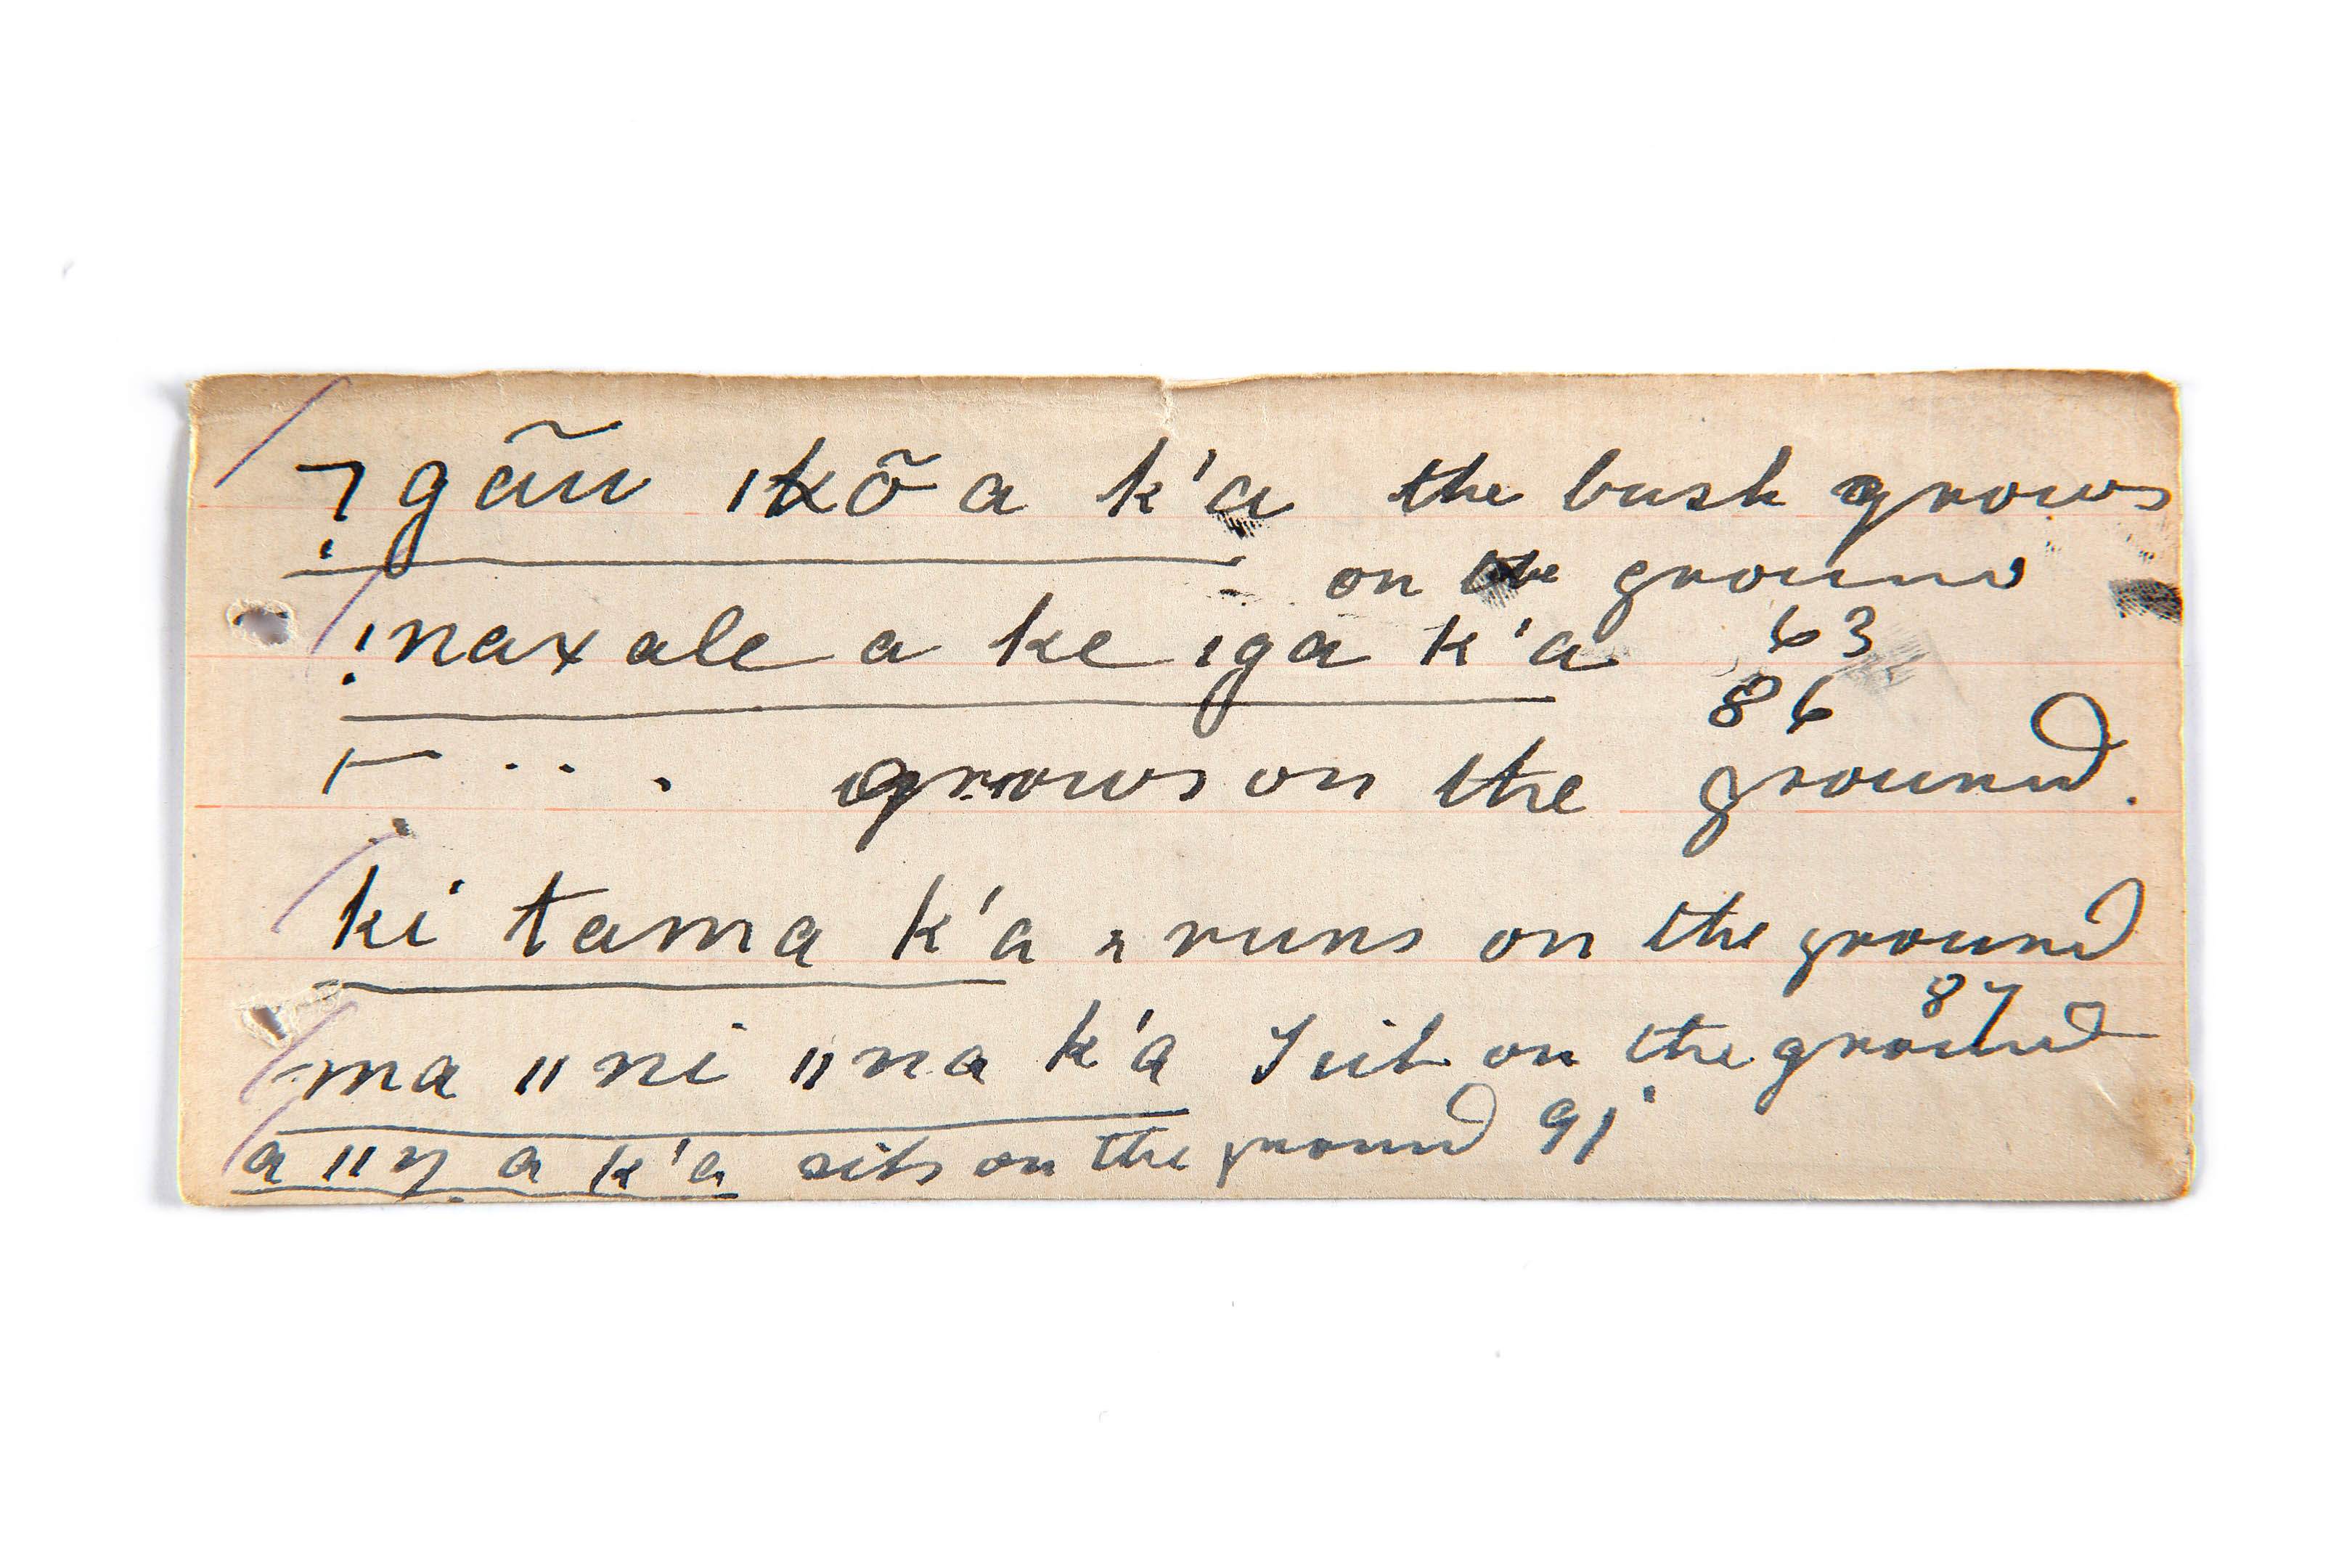 ꜒gãu ǀkõa k'a the bush grows
on the ground
!naxale a ke ǀga k'a 63
86
⊢ . . . grows on the ground.
ki tama k'a runs on the ground
87
ma ǁni ǁna k'a I sit on the ground
a ǁŋ a k'a sits on the ground 91